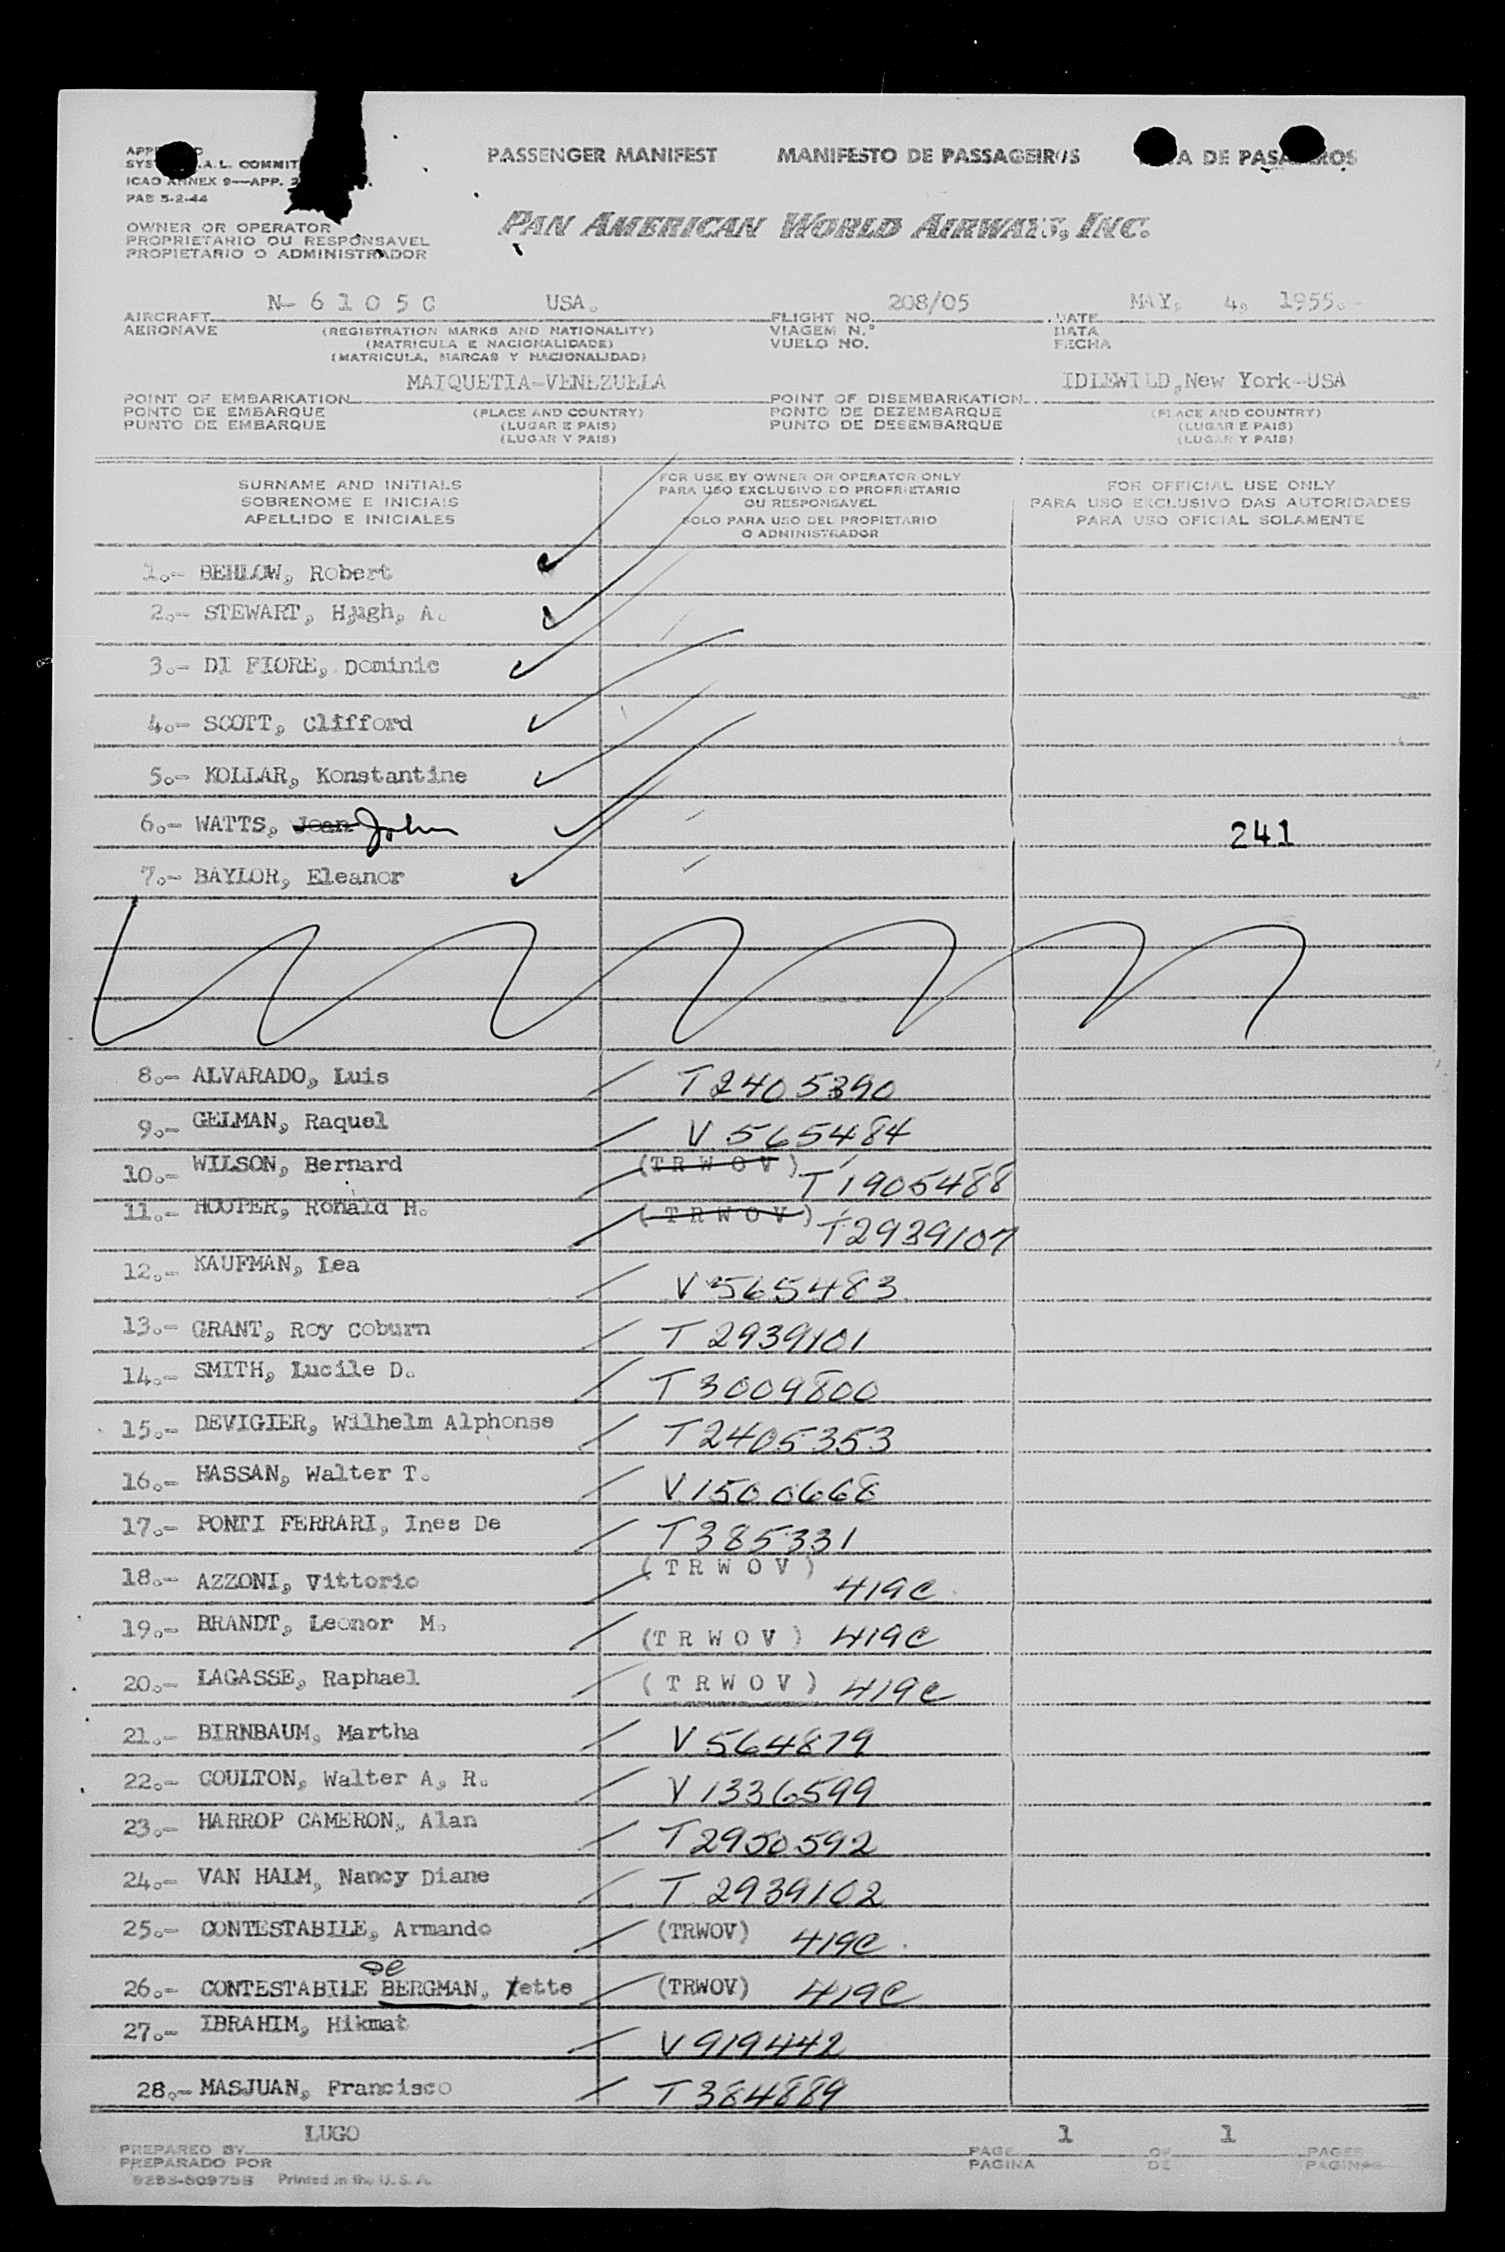 PASSENGER MANIFEST MANIFESTO DE PASSAGEIROS DE PASAJEROS
.A.L. COMMIT
ICAO ANNEX 9—APP.
PAB 5-2-44
OWNER OR OPERATOR
PROPRIETARIO OU RESPONSAVEL
PROPIETARIO O ADMINISTRADOR
PAN AMERICAN WORLD AIRWAYS, INC.
N- 6 1 0 5 C USA. 208/05 MAY, 4, 1955.-
AIRCRAFT FLIGHT NO. DATE
AERONAVE (REGISTRATION MARKS AND NATIONALITY) VIAGEM N.° DATA
(MATRICULA E NACIONALIDADE) VUELO NO. FECHA
(MATRICULA, MARCAS Y NACIONALIDAD)
MAIQUETIA-VENEZUELA IDLEWILD, New York-USA
POINT OF EMBARKATION POINT OF DISEMBARKATION
PONTO DE EMBARQUE (PLACE AND COUNTRY) PONTO DE DEZEMBARQUE (PLACE AND COUNTRY)
PUNTO DE EMBARQUE (LUGAR E PAIS) PUNTO DE DESEMBARQUE (LUGAR E PAIS)
(LUGAR Y PAIS) (LUGAR Y PAIS)
SURNAME AND INITIALS FOR USE BY OWNER OR OPERATOR ONLY FOR OFFICIAL USE ONLY
SOBRENOME E INICIAIS PARA USO EXCLUSIVO DO PROPRIETARIO PARA USO EXCLUSIVO DAS AUTORIDADES
OU RESPONSAVEL
APELLIDO E INICIALES SOLO PARA USO DEL PROPIETARIO PARA USO OFICIAL SOLAMENTE
O ADMINISTRADOR
1.- BEHLOW, Robert
2.- STEWART, Hugh, A.
3.- DI FIORE, Dominic
4.- SCOTT, Clifford
5.- KOLLAR, Konstantine
6.- WATTS, Jean John 241
7.- BAYLOR, Eleanor
8.- ALVARADO, Luis T2405390
9.- GELMAN, Raquel V 565484
10.- WILSON, Bernard (T R W O V) T1905488
11.- HOOPER, Ronald H. (T R W O V) T2939107
12.- KAUFMAN, Lea V 565483
13.- GRANT, Roy Coburn T 2939101
14.- SMITH, Lucile D. T 3009800
15.- DEVIGIER, Wilhelm Alphonse T2405353
16.- HASSAN, Walter T. V1500668
17.- PONTI FERRARI, Ines De T385331
18.- AZZONI, Vittorio (T R W O V) 419C
19.- BRANDT, Leonor M. (T R W O V) 419C
20.- LAGASSE, Raphael (T R W O V) 419C
21.- BIRNBAUM, Martha V 564879
22.- COULTON, Walter A, R. V 1336599
23.- HARROP CAMERON, Alan T2950592
24.- VAN HALM, Nancy Diane T 2939102
25.- CONTESTABILE, Armando (TRWOV) 419C
26.- CONTESTABILE de BERGMAN, Yette (TRWOV) 419C
27.- IBRAHIM, Hikmat V919442
28.- MASJUAN, Francisco T384889
LUGO 1 1
PREPARED BY PAGE OF PAGES
PREPARADO POR PAGINA DE PAGINAS
Printed in the U. S. A.